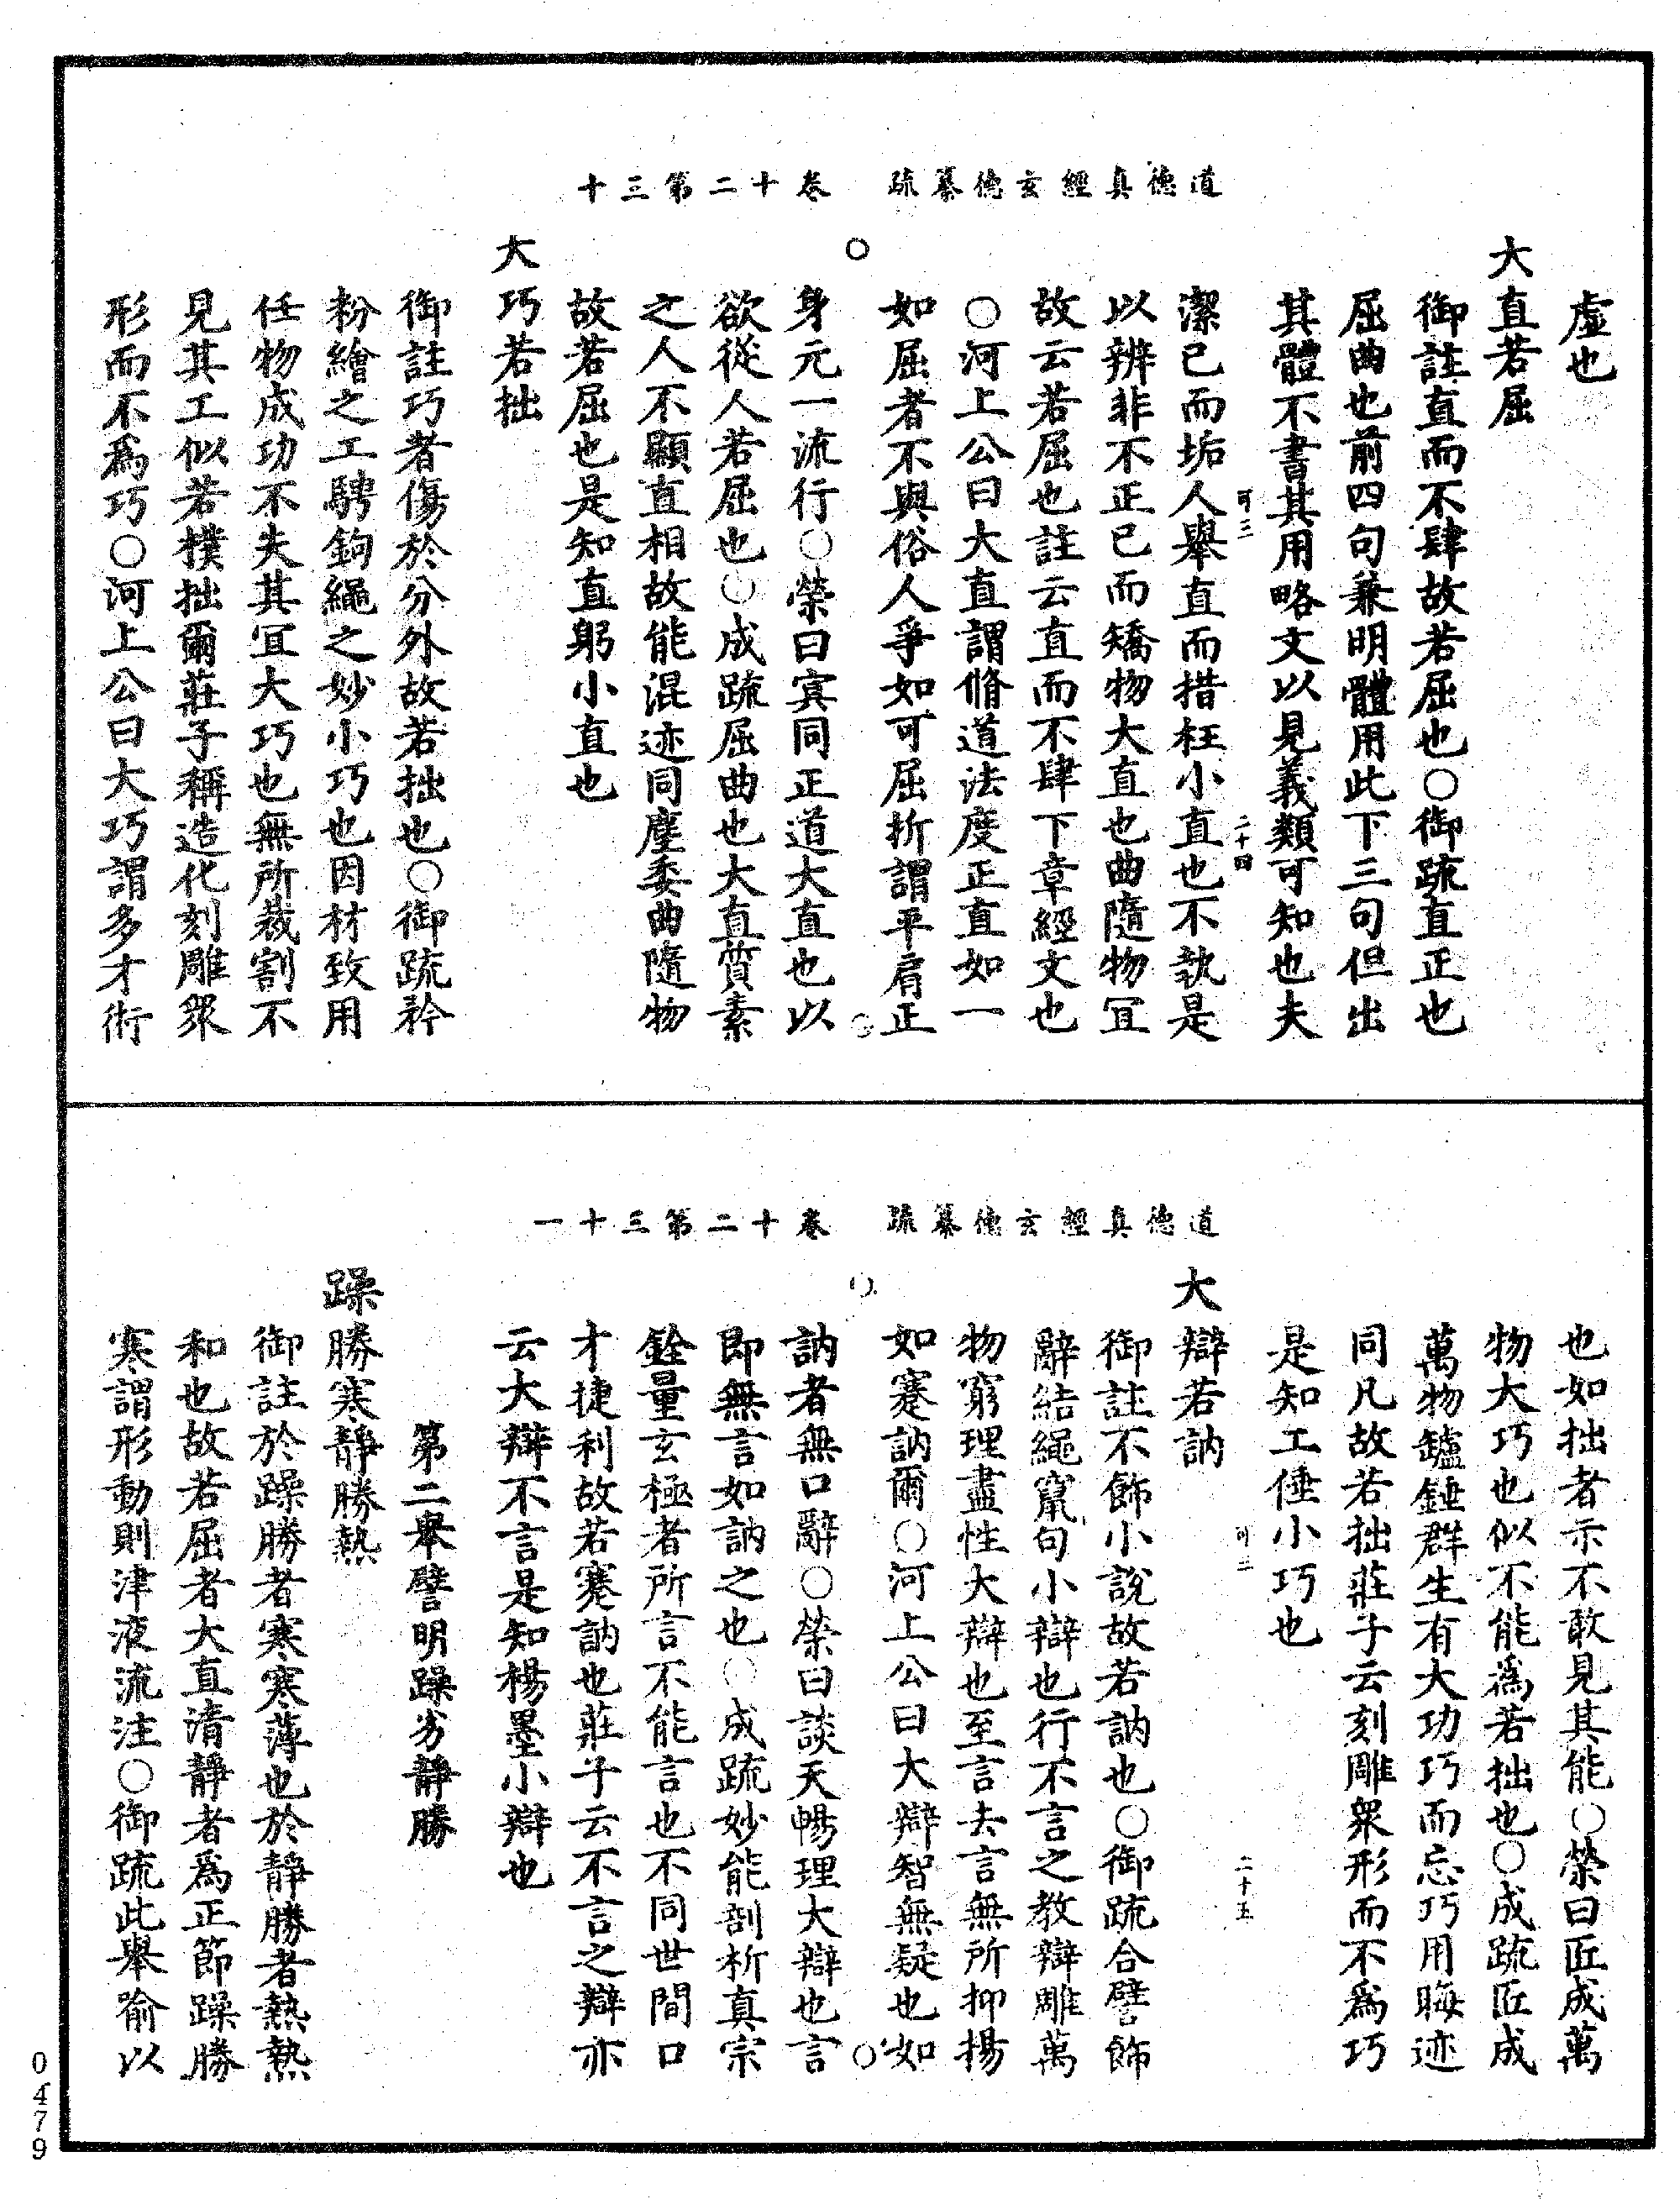 道德真經玄德纂疏　卷十二第三十
虛也
大直若屈
御註直而不肆故若屈也○御疏直正也
屈曲也前四句兼明體用此下三句但出
其體不書其用略文以見義類可知也夫
可三　二十四
潔己而垢人舉直而措枉小直也不執是
以辨非不正己而矯物大直也曲隨物冝
故云若屈也註云直而不肆下章經文也
○河上公曰大直謂脩道法度正直如一
如屈者不與俗人爭如可屈折謂平肩正
身元一流行○榮曰寞同正道大直也以
欲從人若屈也○成疏屈曲也大直質素
之人不顯直相故能混迹同塵委曲隨物
故若屈也是知直躬小直也
大巧若拙
御註巧者傷於分外故若拙也○御疏矜
粉繪之工騁鉤繩之妙小巧也因材致用
任物成功不失其冝大巧也無所裁割不
見其工似若樸拙爾莊子稱造化刻雕衆
形而不為巧○河上公曰大巧謂多才術
道德真經玄德纂疏　卷十二第三十一
也如拙者示不敢見其能○榮曰匠成萬
物大巧也似不能為若拙也○成疏匠成
萬物鑪錘群生有大功巧而忘巧用晦迹
同凡故若拙莊子云刻雕衆形而不為巧
是知工倕小巧也
可三　二十五
大辯若訥
御註不飾小說故若訥也○御疏合譬飾
辭結繩竄句小辯也行不言之教辯雕萬
物窮理盡性大辯也至言去言無所抑揚
如蹇訥爾○河上公曰大辯智無疑也如
訥者無口辭○榮曰談天暢理大辯也言
即無言如訥之也○成疏妙能剖析真宗
銓量玄極者所言不能言也不同世間口
才捷利故若蹇訥也莊子云不言之辯亦
云大辯不言是知楊墨小辯也
第二舉譬明躁劣靜勝
躁勝寒靜勝熱
御註於躁勝者寒寒薄也於靜勝者熱熱
和也故若屈者大直清靜者為正節躁勝
寒謂形動則津液流注○御疏此舉喻以
0479